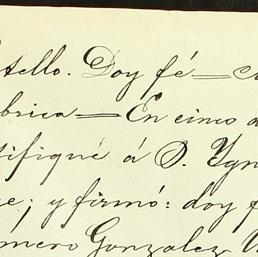 tello. Doy fé —
brica — En cinco d
tifiqué á D. Ygn
e; y firmó: doy f
mero Gonzalez